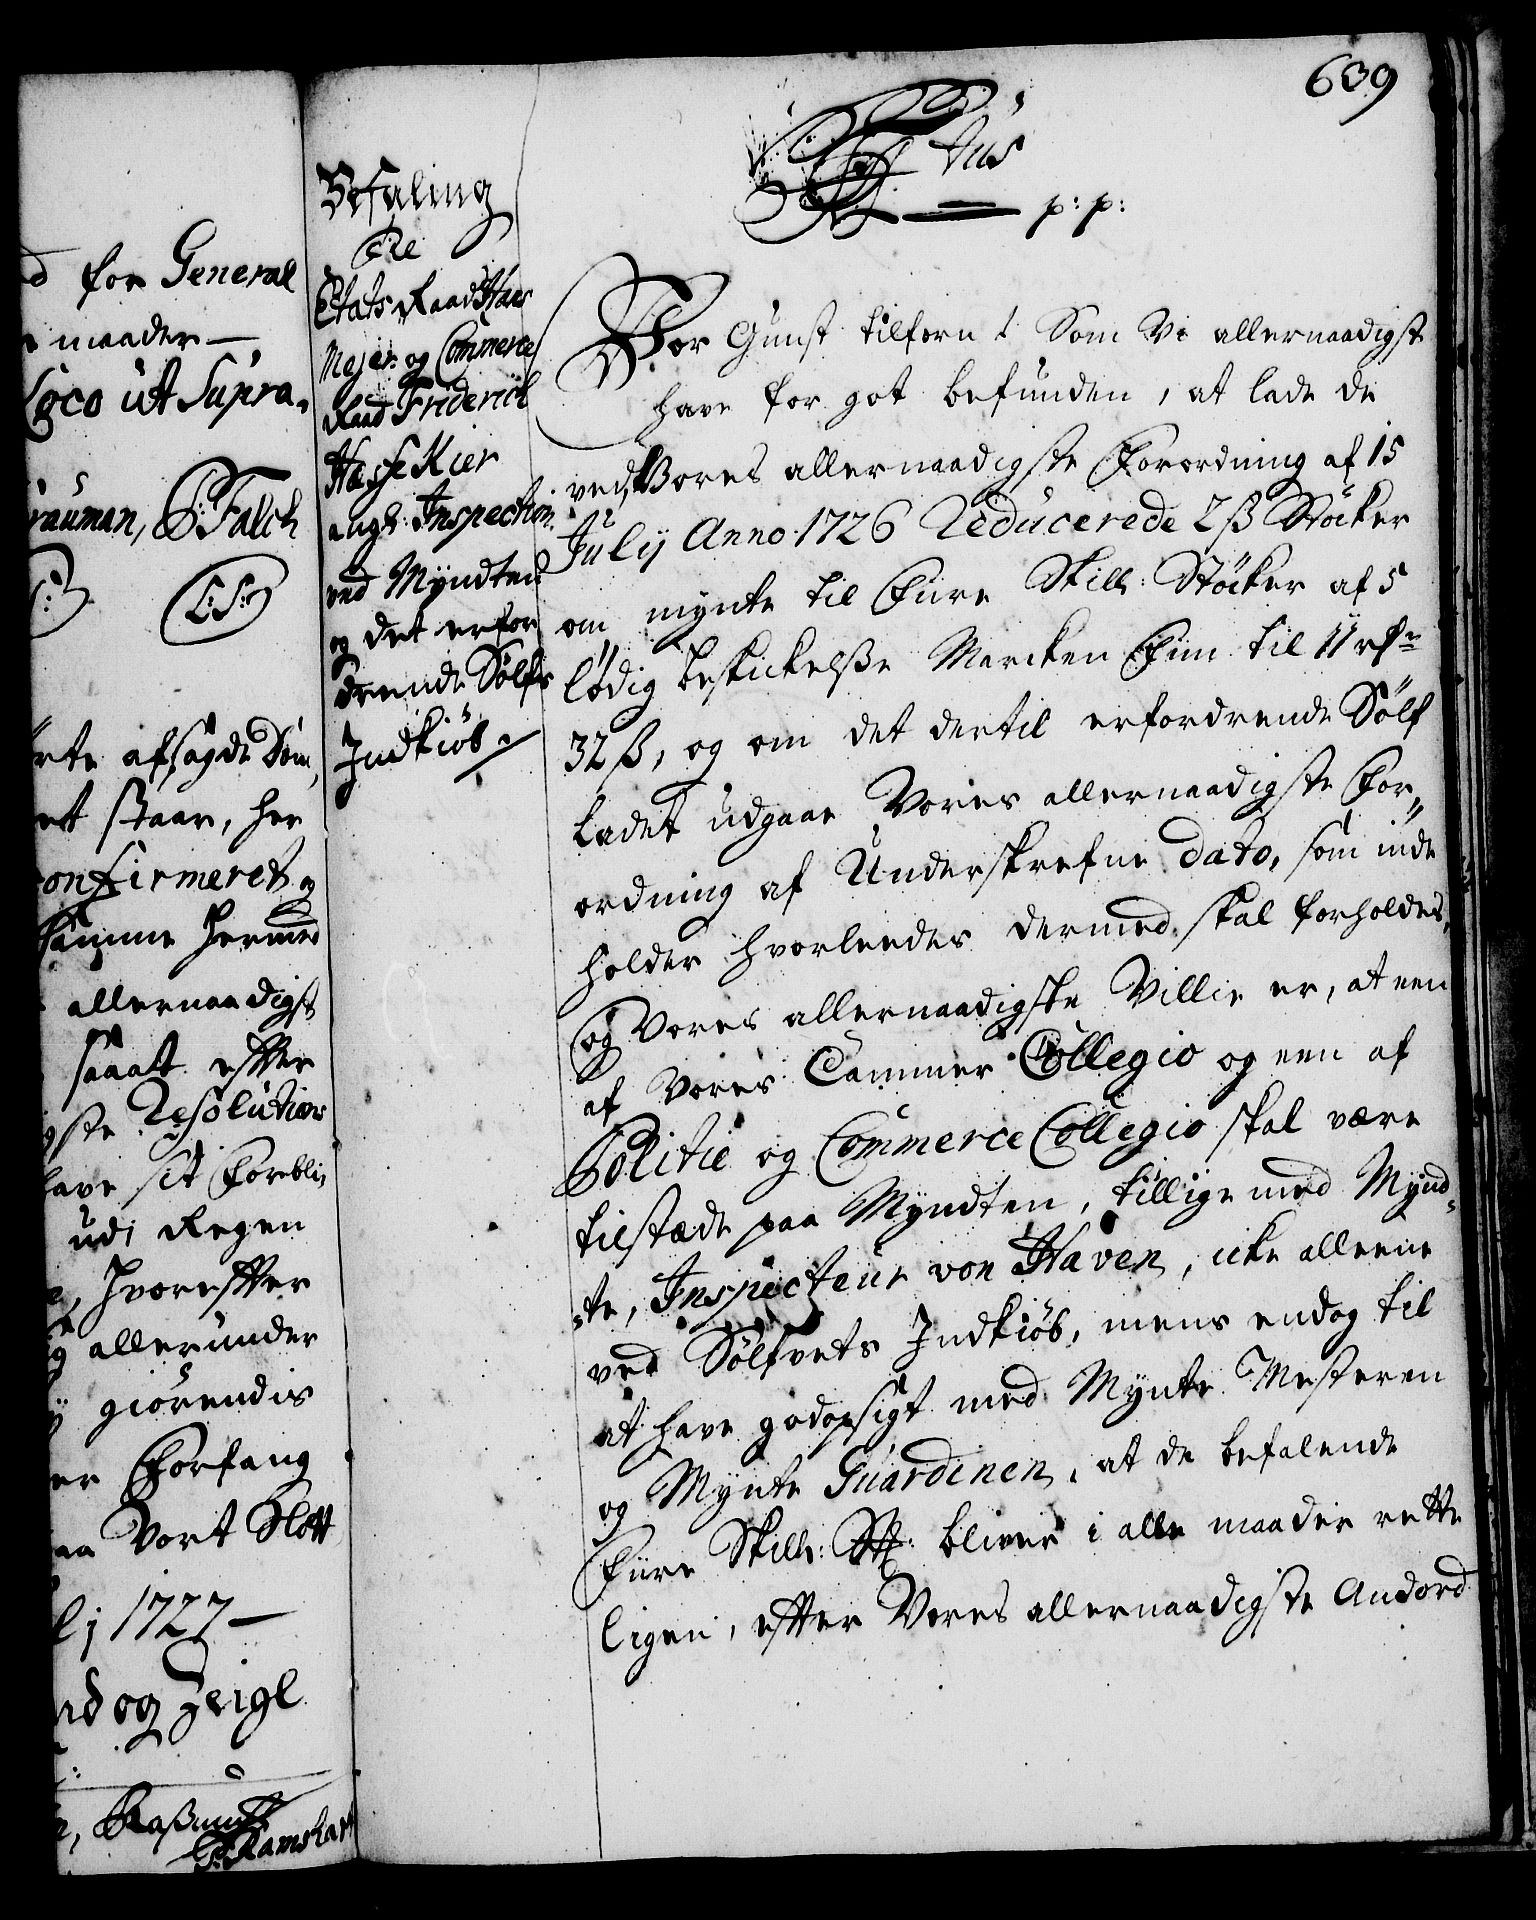 639
d for General
maader
Loco ut Supra.
rauman, Falch
L:S:
rte afsagde Dom,
et staar, her
onfirmeret og
samme hermed
allernaadigst
saaatt efter
gste Resolution
have sit Forbli,
udi Regen
hvorefter
og allerunder
giörendis
er Forfang
aa Vort Slott
lj 1727
nd og Zeigl
Rasmus
Ramshart
Befaling
til
Etats Raad Hans
Mejer og Commerce
Raad Friderich
Hasse Kier
angl: Inspection
ved Myndten
og det erfor
drende Sølfs
Indkiöb.
tus
p: p:
Vor Gunst tilforn! Som Vi allernaadigst
have for got befunden, at lade de
ved Vores allernaadigste Forordning af 15
Julij Anno 1726 Reducerede 2 ß Støcker
om mynte til Fiire Skill: Støcker af 5
lödig beskickelße Marcken Fiin til 11 rdr
32 ß, og om det dertil erfordrende Sölf
ladet udgaae Vores allernaadigste For„
ordning af Underskrefne dato, som inde
holder hvorleedes dermed skal forholdes,
og Vores allernaadigste Villie er, at een
af Vores Cammer Collegio og een af
Politie og Commerce Collegio skal være
tilstæde paa Myndten, tillige med Mynd„
„te, Inspecteur von Haven, icke alleene
ved Sölfvets Indkiöb, mens endog til
at have god opsigt med Mynte Mesteren
og Mynte Guardinen, at de befalende
Fiire Skill: St: bliver i alle maader rette
ligen, efter Vores allernaadigste Anord